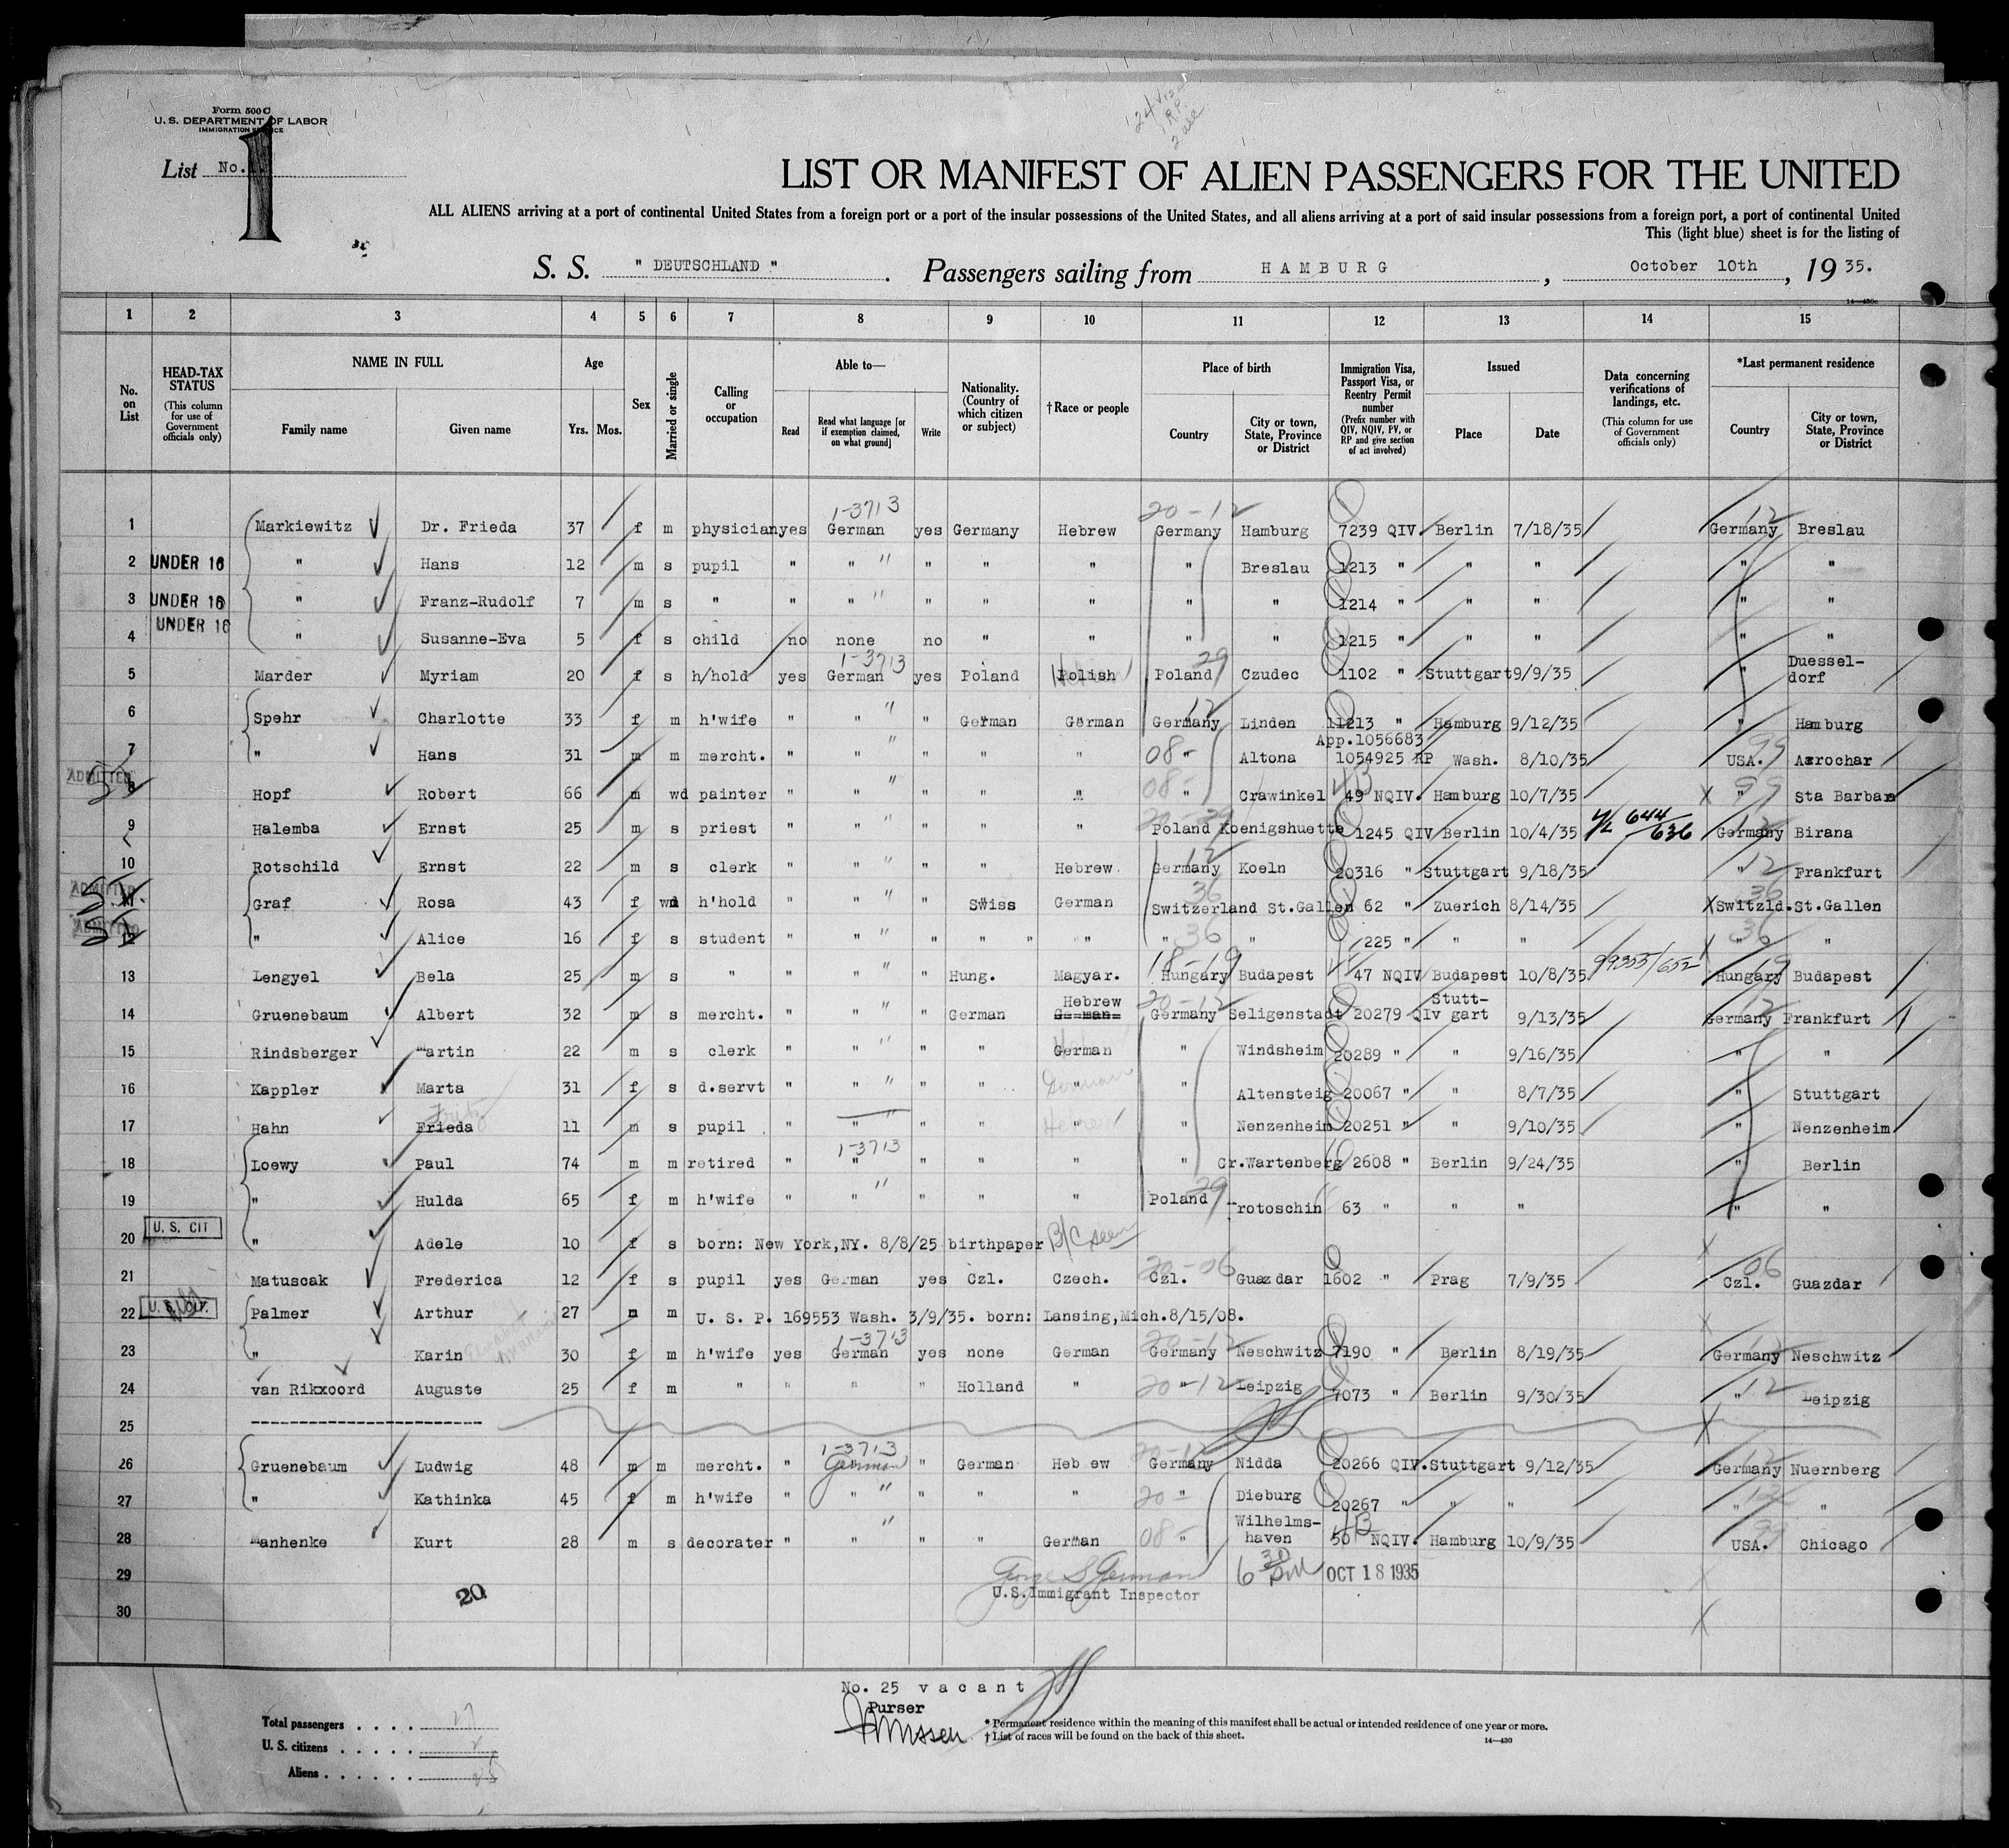 Form 500 C
U. S. DEPARTMENT OF LABOR
IMMIGRATION SERVICE
List No. 1
1
LIST OR MANIFEST OF ALIEN PASSENGERS FOR THE UNITED
ALL ALIENS arriving at a port of continental United States from a foreign port or a port of the insular possessions of the United States, and all aliens arriving at a port of said insular possessions from a foreign port, a port of continental United
This (light blue) sheet is for the listing of
S. S. " DEUTSCHLAND " . Passengers sailing from H A M B U R G , October 10th , 19 35.
14—430c
1 2 3 4 5 6 7 8 9 10 11 12 13 14 15
No. on List
HEAD-TAX STATUS (This column for use of Government officials only)
NAME IN FULL Family name Given name
Age Yrs. Mos.
Sex
Married or single
Calling or occupation
Able to— Read Read what language [or if exemption claimed, on what ground] Write
Nationality. (Country of which citizen or subject)
†Race or people
Place of birth Country City or town, State, Province or District
Immigration Visa, Passport Visa, or Reentry Permit number (Prefix number with QIV, NQIV, PV, or RP and give section of act involved)
Issued Place Date
Data concerning verifications of landings, etc. (This column for use of Government officials only)
*Last permanent residence Country City or town, State, Province or District
1-3713 20-12
1 Markiewitz Dr. Frieda 37 f m physician yes German yes Germany Hebrew Germany Hamburg 7239 QIV. Berlin 7/18/35 Germany 12 Breslau
2 UNDER 16 " Hans 12 m s pupil " " " " " " Breslau 1213 " " " " "
3 UNDER 16 " Franz-Rudolf 7 m s " " " " " " " " 1214 " " " " "
UNDER 16
4 " Susanne-Eva 5 f s child no none no " " " " 1215 " " " " "
1-3713 29
5 Marder Myriam 20 f s h/hold yes German yes Poland Polish Poland Czudec 1102 " Stuttgart 9/9/35 " Duessel-dorf
6 Spehr Charlotte 33 f m h'wife " " " German German Germany 12 Linden 11213 " Hamburg 9/12/35 " Hamburg
App.1056683
7 " Hans 31 m m mercht. " " " " " 08- " Altona 1054925 RP Wash. 8/10/35 USA. 99 Azrochar
ADMITTED
8 Hopf Robert 66 m wd painter " " " " " 08- " Crawinkel 49 NQIV. Hamburg 10/7/35 " 99 Sta Barbara
9 Halemba Ernst 25 m s priest " " " " " Poland Koenigshuette 1245 QIV Berlin 10/4/35 644/636 Germany 12 Birana
10 Rotschild Ernst 22 m s clerk " " " " Hebrew. Germany 12 Koeln 20316 " Stuttgart 9/18/35 " 12 Frankfurt
ADMITTED
11 Graf Rosa 43 f wd h'hold " " " Swiss German Switzerland 36 St.Gallen 62 " Zuerich 8/14/35 Switzld. 36 St.Gallen
ADMITTED
12 " Alice 16 f s student " " " " " " 36 " 225 " " " " 36 "
13 Lengyel Bela 25 m s " " " " Hung. Magyar. 18-19 Hungary Budapest 47 NQIV Budapest 10/8/35 99355/652 Hungary 19 Budapest
14 Gruenebaum Albert 32 m s mercht. " " " German Hebrew German 20-12 Germany Seligenstadt 20279 QIV Stutt-gart 9/13/35 Germany 12 Frankfurt
15 Rindsberger Martin 22 m s clerk " " " " German " Windsheim 20289 " " 9/16/35 " "
16 Kappler Marta 31 f s d.servt " " " " " German " Altensteig 20067 " " 8/7/35 " Stuttgart
17 Hahn Frieda Fritz 11 m s pupil " " " " " Hebrew " Nenzenheim 20251 " " 9/10/35 " Nenzenheim
1-3713
18 Loewy Paul 74 m m retired " " " " " " Gr.Wartenberg 2608 " Berlin 9/24/35 " Berlin
19 " Hulda 65 f m h'wife " " " " " Poland 29 Krotoschin 63 " " " " "
U. S. CIT
20 " Adele 10 f s born: New York,NY. 8/8/25 birthpaper B/C seen
21 Matuscak Frederica 12 f s pupil yes German yes Czl. Czech. 20-06 Czl. Guazdar 1602 " Prag 7/9/35 Czl. 06 Guazdar
U. S. CIT.
22 Palmer Arthur 27 m m U. S. P. 169553 Wash. 3/9/35. born: Lansing,Mich.8/15/08.
1-3713 20-12
23 " Karin 30 f m h'wife yes German yes none German Germany Neschwitz 7190 " Berlin 8/19/35 Germany 12 Neschwitz
24 van Rikxoord Auguste 25 f m " " " " Holland " 20-12 " Leipzig 7073 " Berlin 9/30/35 " 12 Leipzig
25 ------------------------
1-3713 20-12
26 Gruenebaum Ludwig 48 m m mercht. " German " German Heb ew Germany Nidda 20266 QIV. Stuttgart 9/12/35 Germany 12 Nuernberg
27 " Kathinka 45 f m h'wife " " " " " 20- " Dieburg 20267 " " " " 12 "
28 Manhenke Kurt 28 m s decorater " " " " German 08- " Wilhelms-haven 50 NQIV. Hamburg 10/9/35 USA. 99 Chicago
29 George S German 6 30 PM OCT 18 1935
20 U.S.Immigrant Inspector
30
No. 25 v a c a n t
Purser
Total passengers . . . . 27
U. S. citizens . . . . . 2
Aliens . . . . . . 25
* Permanent residence within the meaning of this manifest shall be actual or intended residence of one year or more.
† List of races will be found on the back of this sheet.
14—430